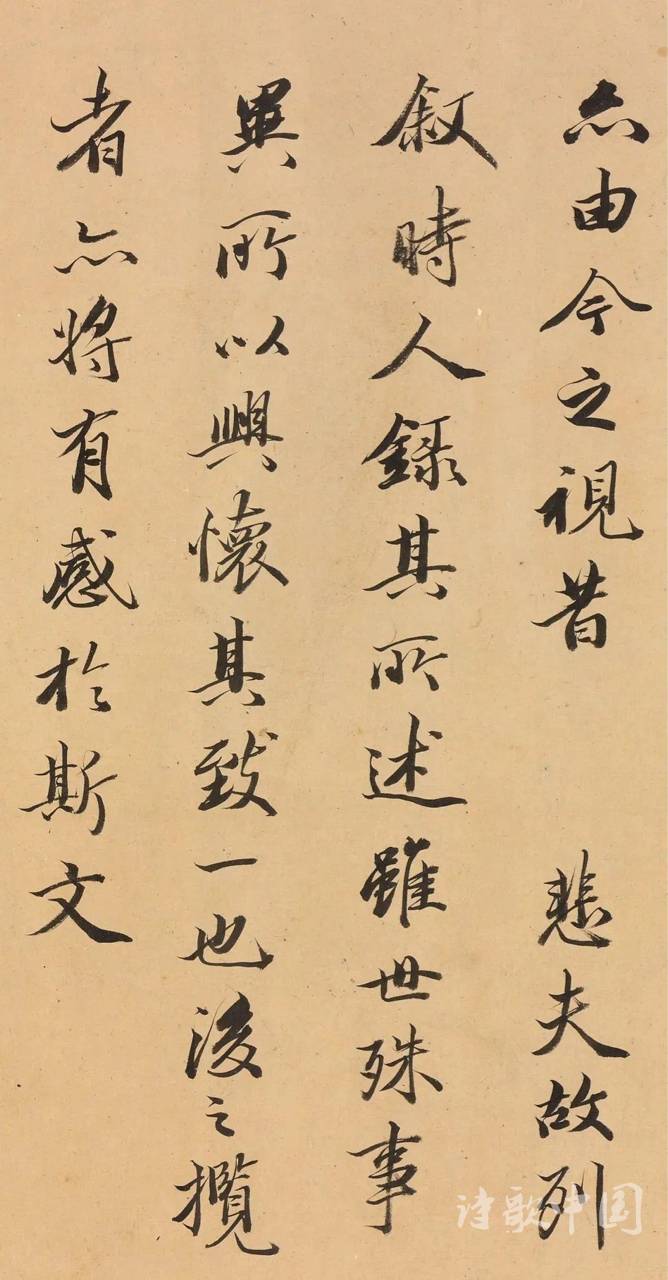 亦由今之視昔 悲夫故列
叙時人錄其所述雖世殊事
異所以興懷其致一也後之攬
者亦將有感於斯文
诗歌中国